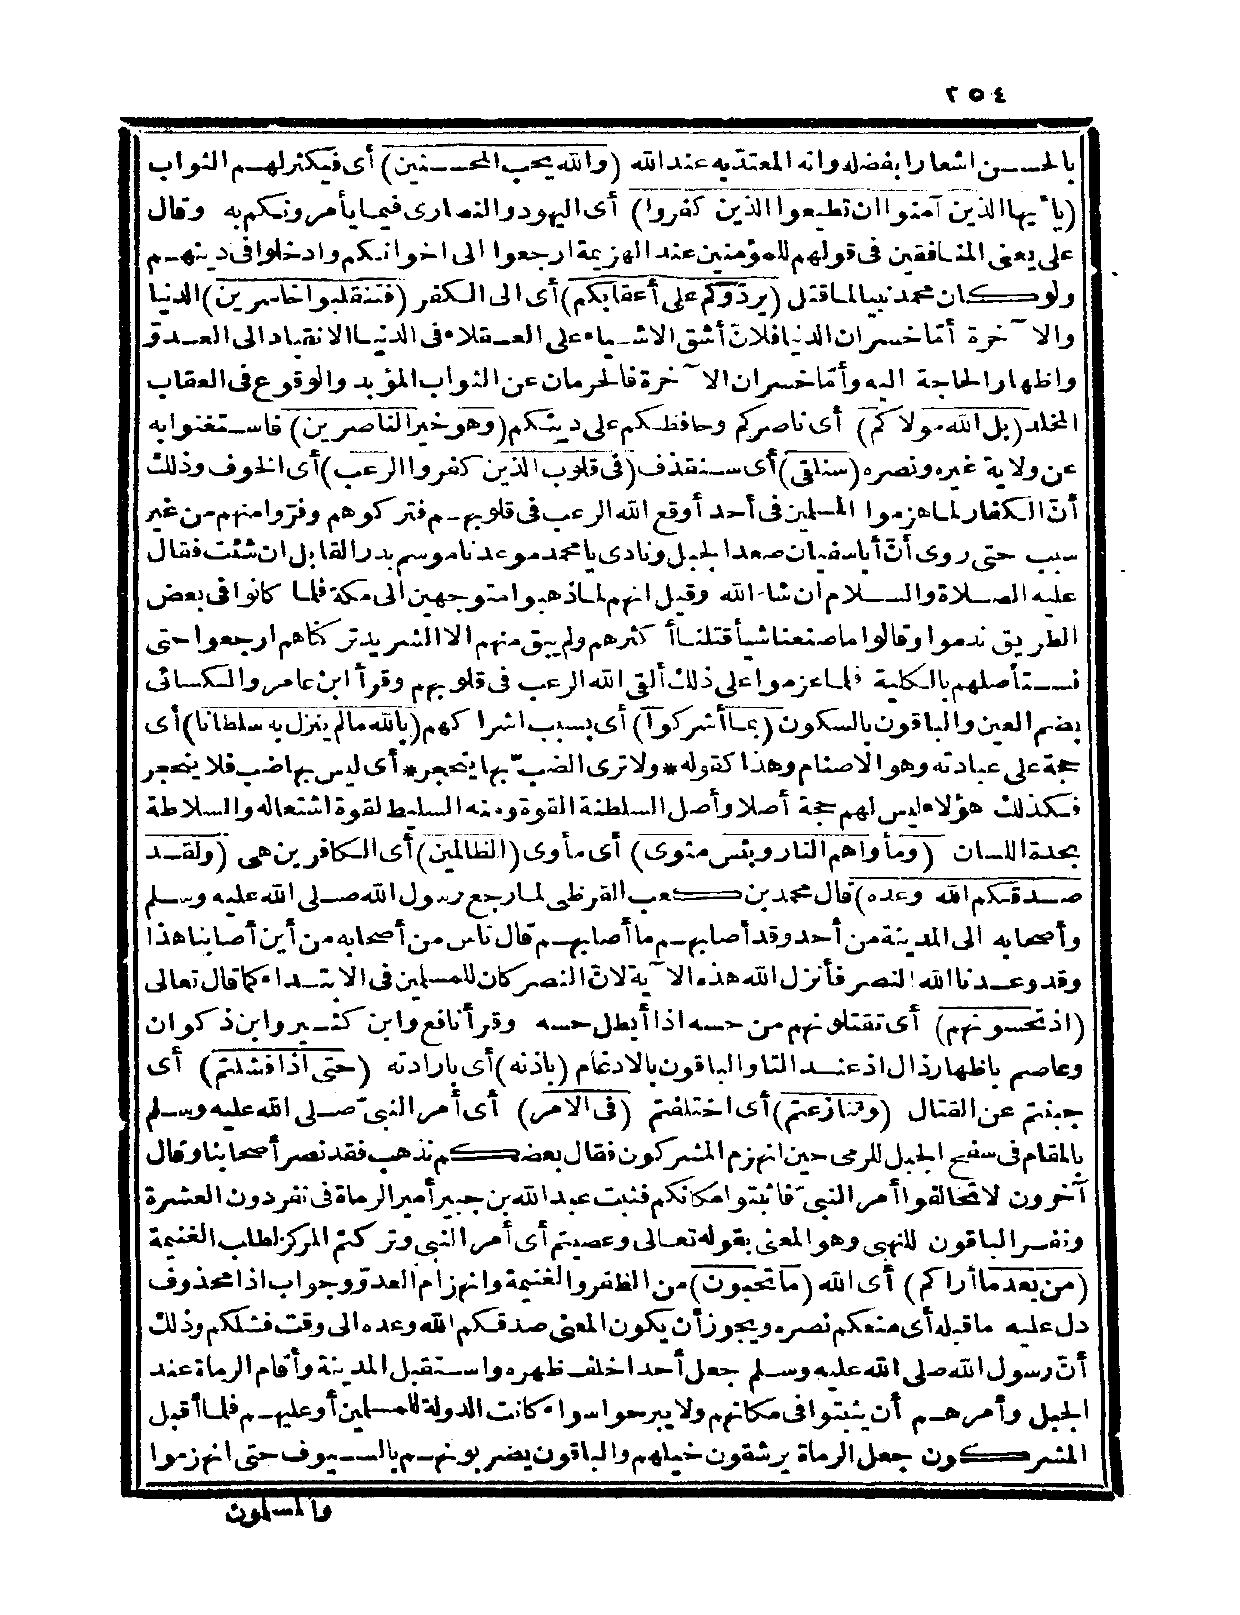 ٢٥٤
بالحسن اشعارا بفضله وانه المعتد به عند الله (والله يحب المحسنين) أى فيكثر لهم الثواب
(يا أيها الذين آمنوا ان تطيعوا الذين كفروا) أى اليهود والنصارى فيما يأمرونكم به وقال
على يعنى المنافقين فى قولهم للمؤمنين عند الهزيمة ارجعوا الى اخوانكم وادخلوا فى دينهم
ولو كان محمد نبيا لما قتل (يردّوكم على أعقابكم) أى الى الكفر (فتنقلبوا خاسرين) الدنيا
والآخرة أمّا خسران الدنيا فلانّ أشق الاشياء على العقلاء فى الدنيا الانقياد الى العدوّ
واظهار الحاجة اليه وأمّا خسران الآخرة فالحرمان عن الثواب المؤبد والوقوع فى العقاب
المخلد (بل الله مولاكم) أى ناصركم وحافظكم على دينكم (وهو خير الناصرين) فاستغنوا به
عن ولاية غيره ونصره (سنلقى) أى سنقذف (فى قلوب الذين كفروا الرعب) أى الخوف وذلك
أنّ الكفار لما هزموا المسلمين فى أحد أوقع الله الرعب فى قلوبهم فتركوهم وفرّوا منهم من غير
سبب حتى روى أنّ أبا سفيان صعد الجبل ونادى يا محمد موعدنا موسم بدر القابل ان شئت فقال
عليه الصلاة والسلام ان شاء الله وقيل انهم لما ذهبوا متوجهين الى مكة فلما كانوا فى بعض
الطريق ندموا وقالوا ما صنعنا شيأ قتلنا أكثرهم ولم يبق منهم الا الشريد تركناهم ارجعوا حتى
نستأصلهم بالكلية فلما عزموا على ذلك ألقى الله الرعب فى قلوبهم وقرأ ابن عامر والكسائى
بضم العين والباقون بالسكون (بما أشركوا) أى بسبب اشراكهم (بالله ما لم ينزل به سلطانا) أى
حجة على عبادته وهو الاصنام وهذا كقوله * ولا ترى الضبّ بها ينجحر * أى ليس بها ضب فلا ينجحر
فكذلك هؤلاء ليس لهم حجة أصلا وأصل السلطنة القوة ومنه السليط لقوة اشتعاله والسلاطة
بحدة اللسان (ومأواهم النار وبئس مثوى) أى مأوى (الظالمين) أى الكافرين هى (ولقد
صدقكم الله وعده) قال محمد بن كعب القرظى لما رجع رسول الله صلى الله عليه وسلم
وأصحابه الى المدينة من أحد وقد أصابهم ما أصابهم قال ناس من أصحابه من أين أصابنا هذا
وقد وعدنا الله النصر فأنزل الله هذه الآية لانّ النصر كان للمسلمين فى الابتداء كما قال تعالى
(اذ تحسونهم) أى تقتلونهم من حسه اذا أبطل حسه وقرأ نافع وابن كثير وابن ذكوان
وعاصم باظهار ذال اذ عند التا والباقون بالادغام (باذنه) أى بارادته (حتى اذا فشلتم) أى
جبنتم عن القتال (وتنازعتم) أى اختلفتم (فى الامر) أى أمر النبىّ صلى الله عليه وسلم
بالمقام فى سفح الجبل للرمى حين انهزم المشركون فقال بعضكم نذهب فقد نصر أصحابنا وقال
آخرون لا تخالفوا أمر النبىّ فاثبتوا مكانكم فثبت عبد الله بن جبير أمير الرماة فى نفر دون العشرة
ونفر الباقون للنهبى وهو المعنى بقوله تعالى وعصيتم أى أمر النبى وتركتم المركز لطلب الغنيمة
(من بعد ما أراكم) أى الله (ما تحبون) من الظفر والغنيمة وانهزام العدوّ وجواب اذا محذوف
دل عليه ما قبله أى منعكم نصره ويجوز أن يكون المعنى صدقكم الله وعده الى وقت فشلكم وذلك
أنّ رسول الله صلى الله عليه وسلم جعل أحدا خلف ظهره واستقبل المدينة وأقام الرماة عند
الجبل وأمرهم أن يثبتوا فى مكانهم ولا يبرحوا سواء كانت الدولة للمسلمين أو عليهم فلما أقبل
المشركون جعل الرماة يرشقون خيلهم والباقون يضربونهم بالسيوف حتى انهزموا
والمسلمون